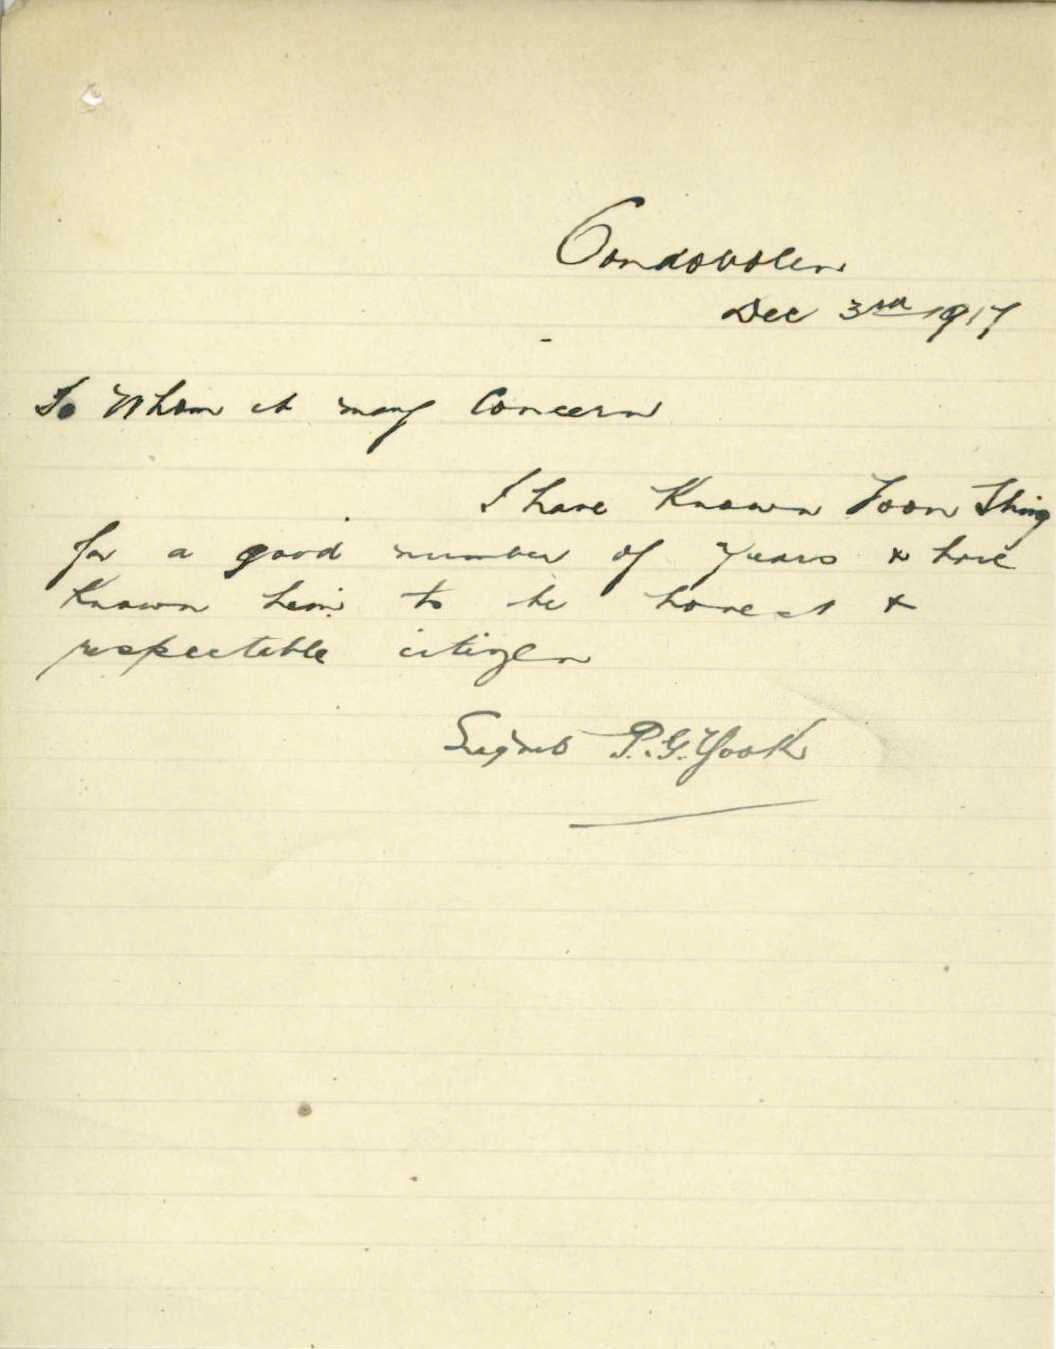 Condobolin
Dec 3rd 1917
To Whom it may Concern
I have Known Foon Thing
for a good number of years & have
Known him to be honest &
respectable citizen
Signed P. G. Yook